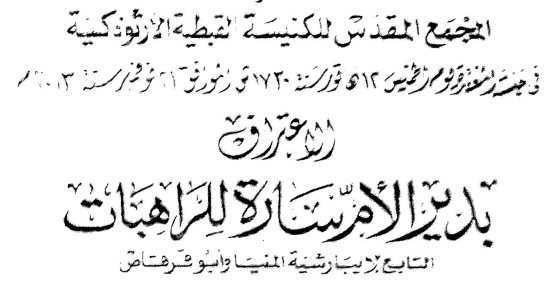 المجمع المقدس للكنيسة القبطية الأرثوذكسية
في جلسته المنعقدة يوم الخميس ١٢ هاتور سنة ١٧٣٠ ش الموافق ٢١ نوفمبر سنة ٢٠١٣م
الاعتراف
بدير الأم سارة للراهبات
التابع لإيبارشية المنيا وأبو قرقاص